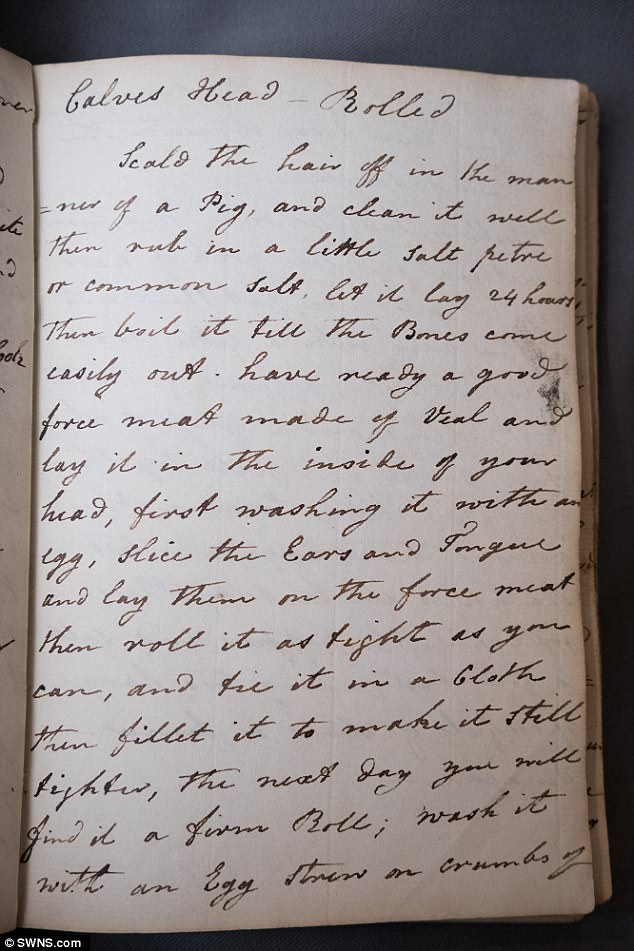 Calves Head - Rolled
Scald the hair off in the man
=ner of a Pig, and clean it well
then rub in a little salt petre
or common salt, let it lay 24 hours
then boil it till the Bones come
easily out. have ready a good
force meat made of Veal and
lay it in the inside of your
head, first washing it with an
egg, slice the Ears and Tongue
and lay them on the force meat
then roll it as tight as you
can, and tie it in a Cloth
then fillet it to make it still
tighter, the next day you will
find it a firm Roll; wash it
with an Egg strew on crumbs of
© SWNS.com